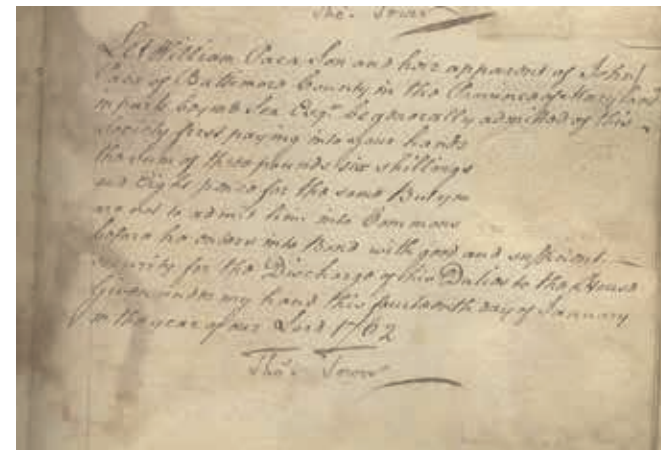 Tho.s Tower
Let William Paca Son and heir apparent of John
Paca of Baltimore County in the Province of Maryland
in parts beyond Sea Esq.r be generally admitted of this
society first paying into your hands
the sum of three pounds six shillings
and Eight pence for the same But you
are not to admit him into Commons
before he enters into Bond with good and sufficient
security for the Discharge of his Duties to the House
Given under my hand this fourteenth day of January
in the year of our Lord 1762
Tho.s Tower